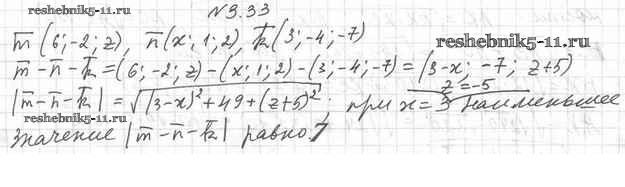 №9.33
reshebnik5-11.ru
m̅ (6; -2; z), n̅ (x; 1; 2), k̅ (3; -4; -7)
reshebnik5-11.ru
m̅ - n̅ - k̅ = (6; -2; z) - (x; 1; 2) - (3; -4; -7) = (3-x; -7; z+5)
|m̅ - n̅ - k̅| = √((3-x)² + 49 + (z+5)²); при x=3 z=-5 наименьшее
reshebnik5-11.ru
значение |m̅ - n̅ - k̅| равно 7